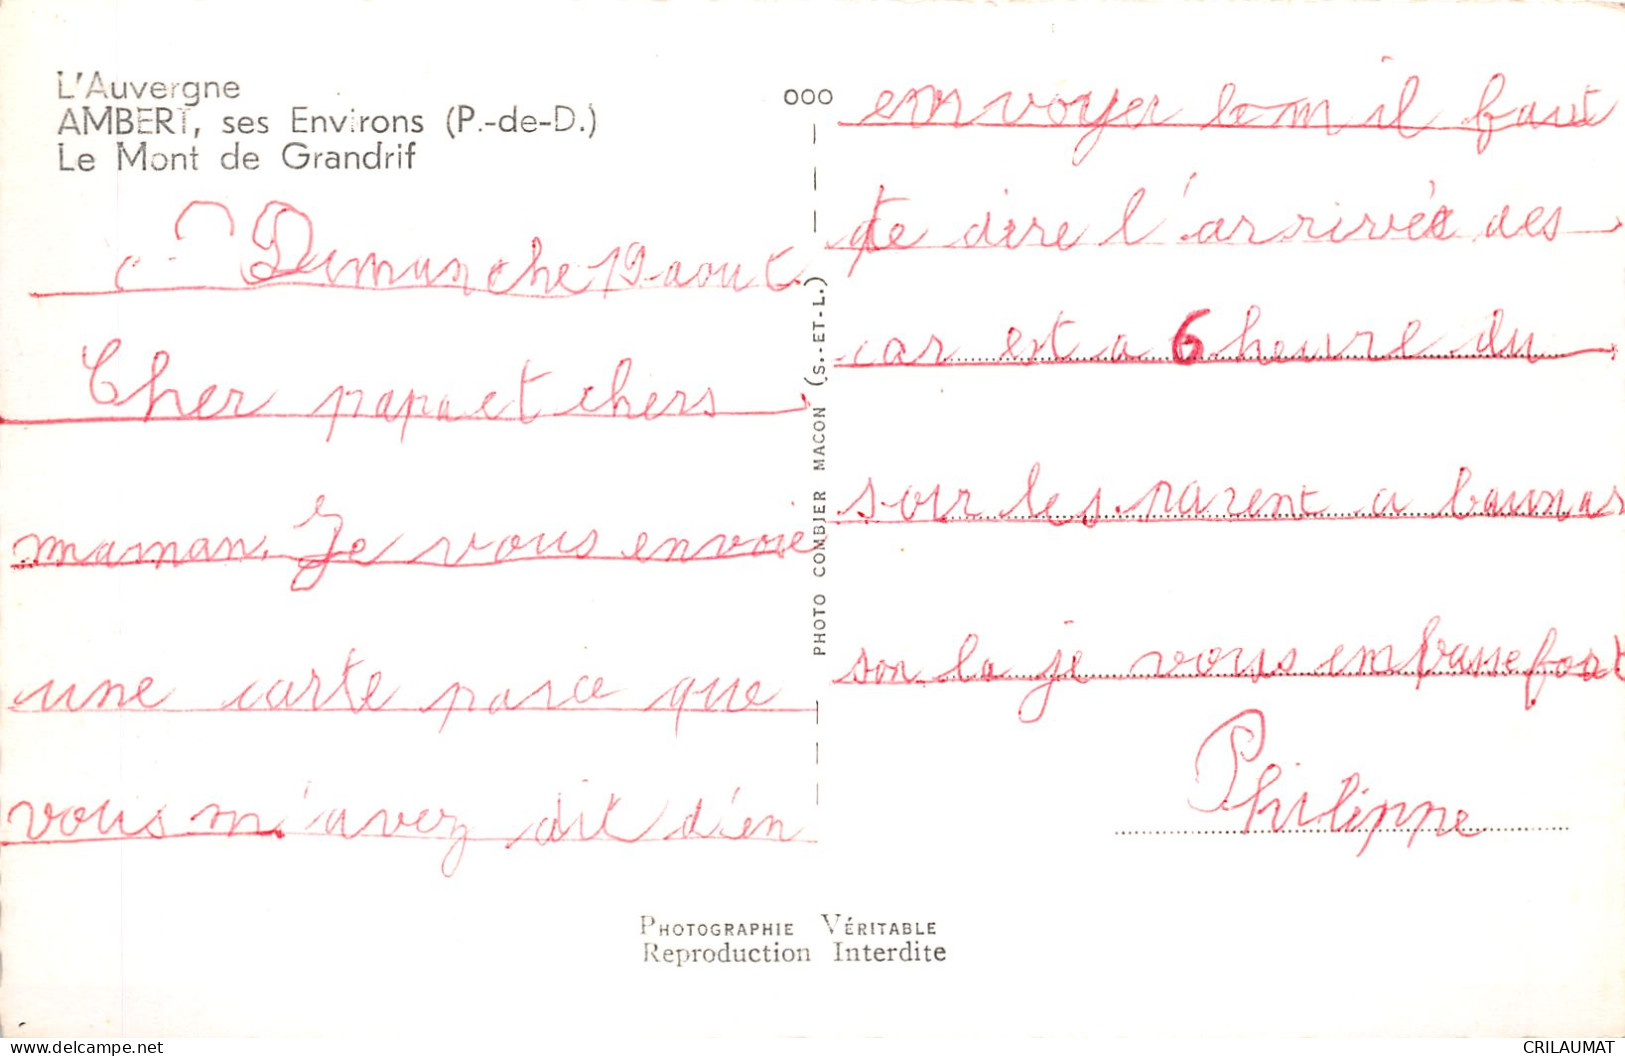 L'Auvergne
AMBERT, ses Environs (P.-de-D.)
Le Mont de Grandrif
Dimanche 19 aout
Cher papa et chers
maman. Je vous envoie
une carte parce que
vous m'avez dit d'en
000
PHOTO COMBIER MACON (S.-ET-L.)
envoyer il faut
te dire l'arrivée des
car est a 6 heure du
soir les parent a
son la je vous embasse fort
Philippe
PHOTOGRAPHIE VÉRITABLE
Reproduction Interdite
www.delcampe.net
CRILAUMAT